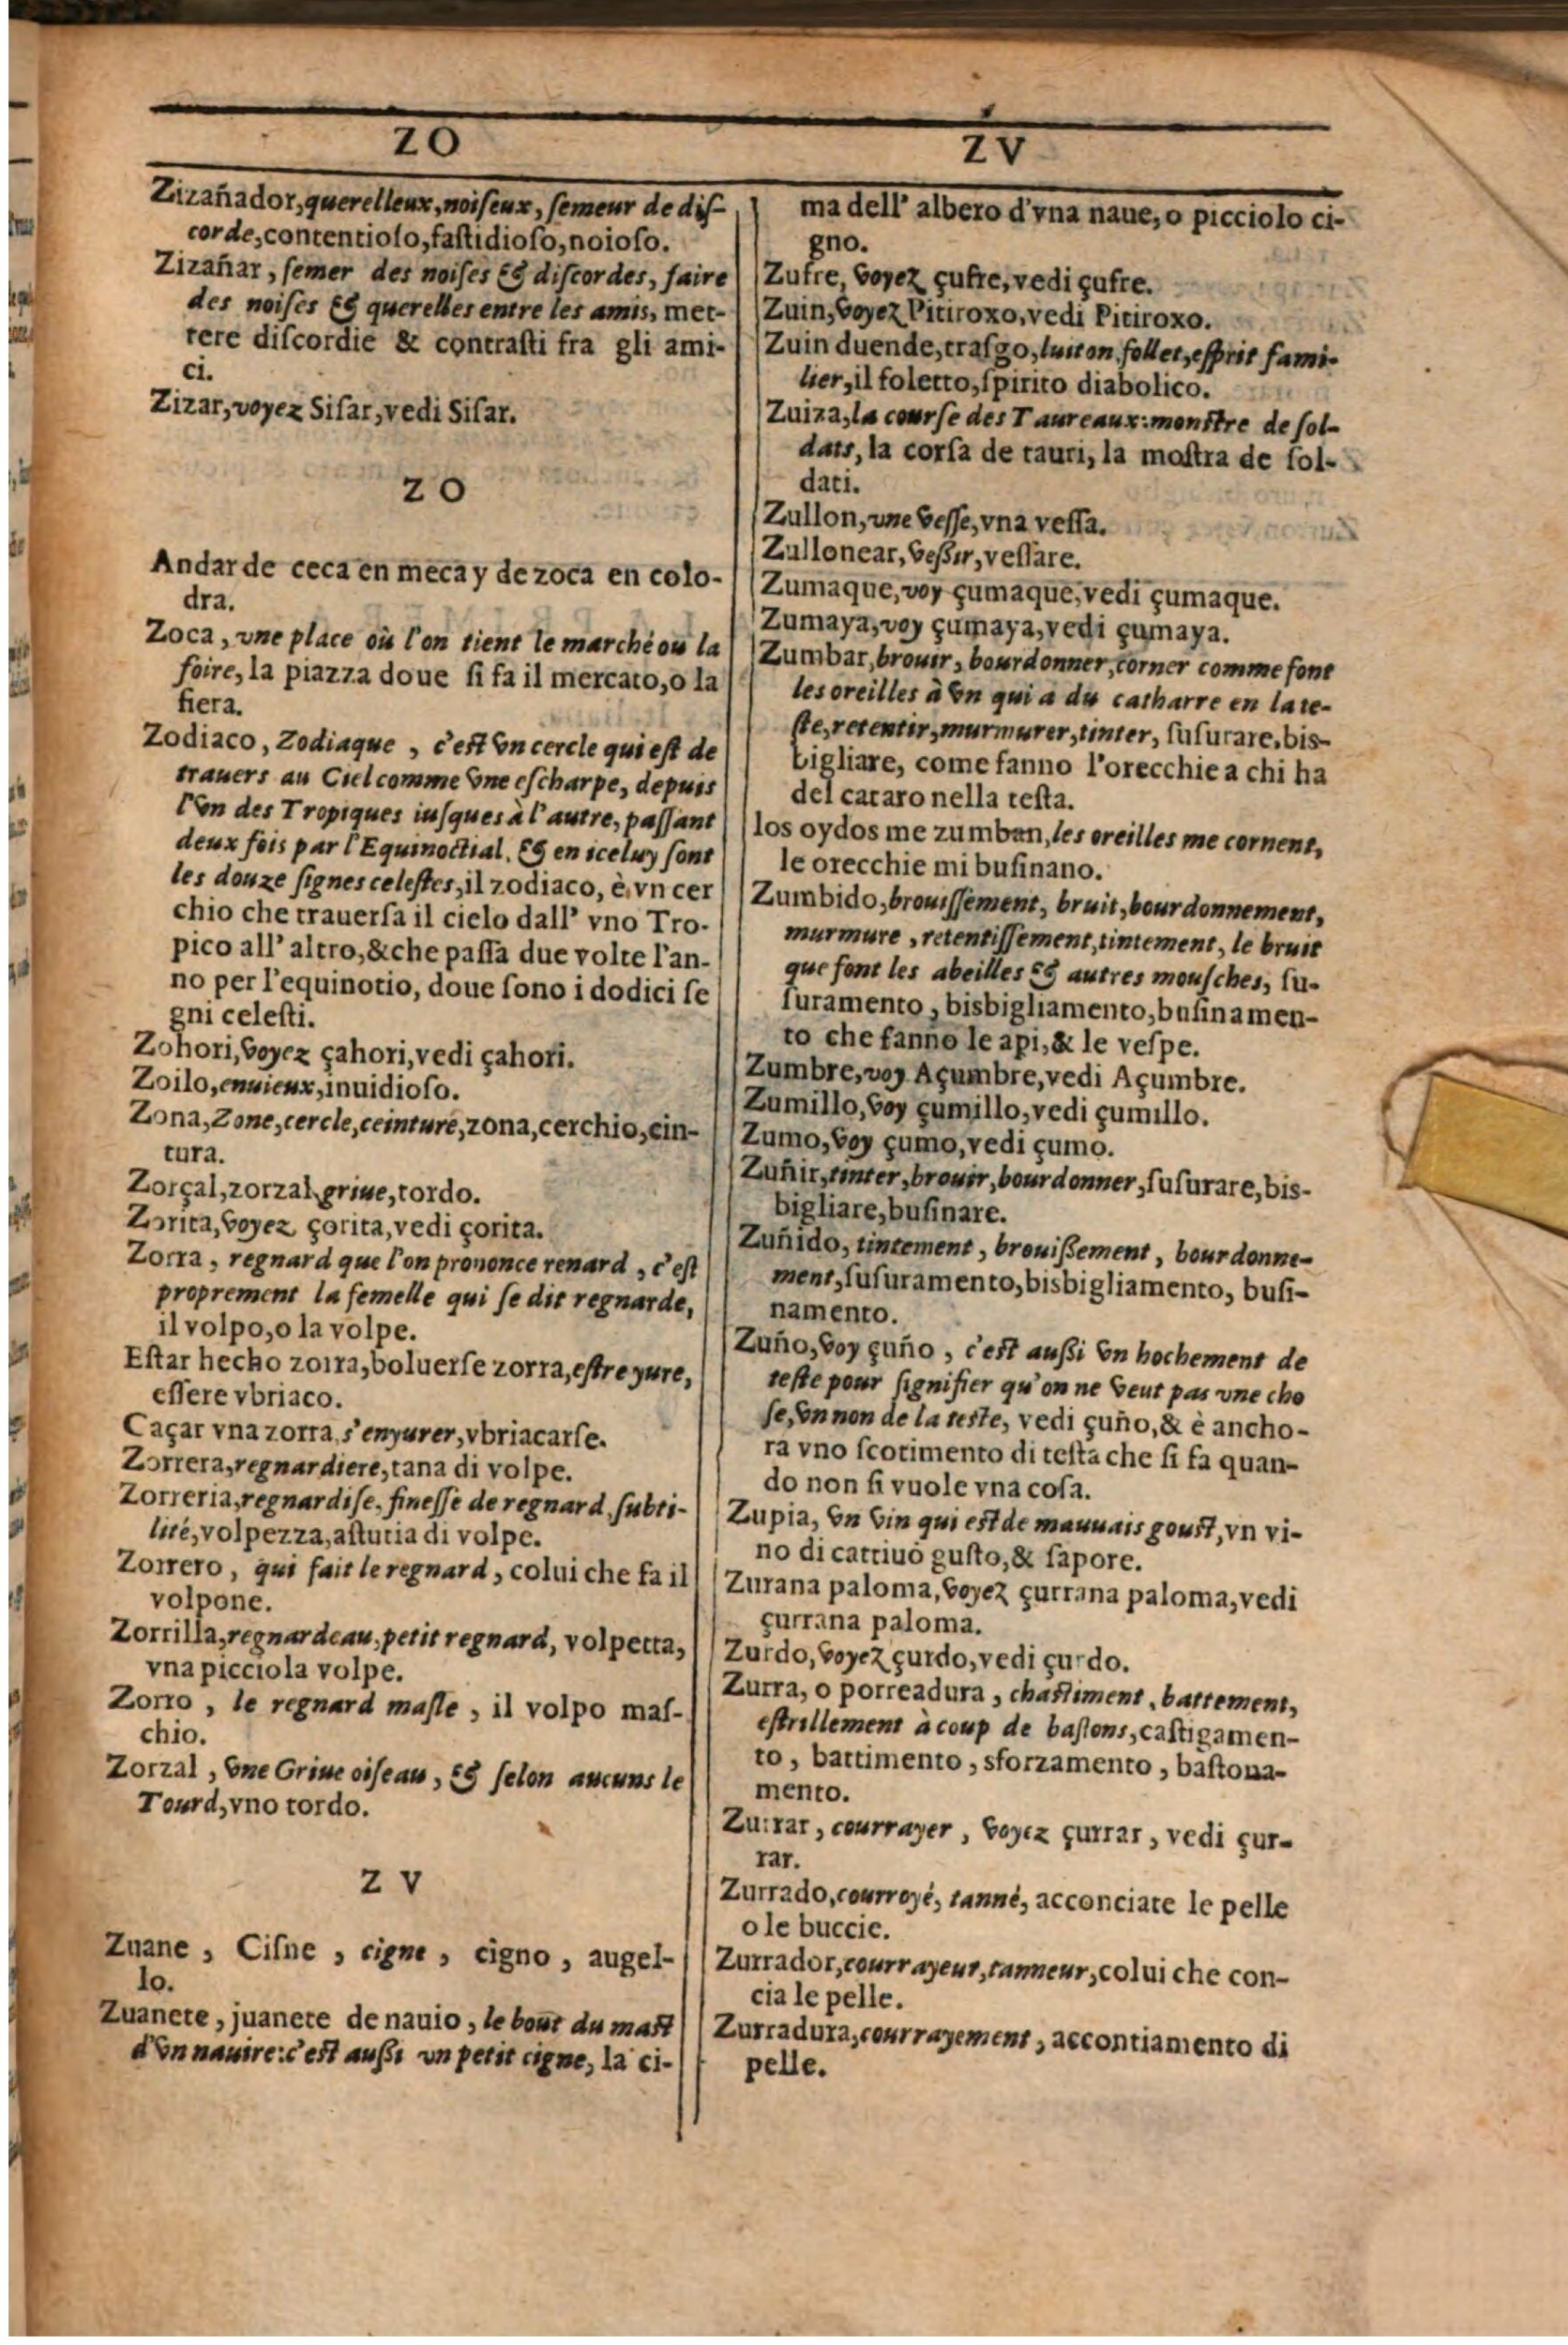 ZO
Zizañador, querelleux, noiseux, semeur de dis-
corde, contentioso, fastidioso, noioso.
Zizañar, semer des noises & discordes, faire
des noises & querelles entre les amis, met-
tere discordie & contrasti fra gli ami-
ci.
Zizar, voyez Sisar, vedi Sisar.
ZO
Andar de ceca en meca y de zoca en colo-
dra.
Zoca, vne place où l'on tient le marché ou la
foire, la piazza doue si fa il mercato, o la
fiera.
Zodiaco, Zodiaque, c'est vn cercle qui est de
trauers au Ciel comme vne escharpe, depuis
l'vn des Tropiques iusques à l'autre, passant
deux fois par l'Equinoctial, & en iceluy sont
les douze signes celestes, il zodiaco, è vn cer
chio che trauersa il cielo dall' vno Tro-
pico all' altro, & che passa due volte l'an-
no per l'equinotio, doue sono i dodici se
gni celesti.
Zohori, voyez çahori, vedi çahori.
Zoilo, enuieux, inuidioso.
Zona, Zone, cercle, ceinture, zona, cerchio, cin-
tura.
Zorçal, zorzal, griue, tordo.
Zorita, voyez çorita, vedi çorita.
Zorra, regnard que l'on prononce renard, c'est
proprement la femelle qui se dit regnarde,
il volpo, o la volpe.
Estar hecho zorra, boluerse zorra, estre yure,
essere vbriaco.
Caçar vna zorra, s'enyurer, vbriacarse.
Zorrera, regnardiere, tana di volpe.
Zorreria, regnardise, finesse de regnard, subti-
lité, volpezza, astutia di volpe.
Zorrero, qui fait le regnard, colui che fa il
volpone.
Zorrilla, regnardeau, petit regnard, volpetta,
vna picciola volpe.
Zorro, le regnard masle, il volpo mas-
chio.
Zorzal, vne Griue oiseau, & selon aucuns le
Tourd, vno tordo.
ZV
Zuane, Cisne, cigne, cigno, augel-
lo.
Zuanete, juanete de nauio, le bout du mast
d'vn nauire: c'est aussi vn petit cigne, la ci-
ZV
ma dell' albero d'vna naue, o picciolo ci-
gno.
Zufre, voyez çufre, vedi çufre.
Zuin, voyez Pitiroxo, vedi Pitiroxo.
Zuin duende, trasgo, luiton, follet, esprit fami-
lier, il foletto, spirito diabolico.
Zuiza, la course des Taureaux: monstre de sol-
dats, la corsa de tauri, la mostra de sol-
dati.
Zullon, vne vesse, vna vessa.
Zullonear, vessir, vessare.
Zumaque, voy çumaque, vedi çumaque.
Zumaya, voy çumaya, vedi çumaya.
Zumbar, brouir, bourdonner, corner comme font
les oreilles à vn qui a du catharre en la te-
ste, retentir, murmurer, tinter, susurare, bis-
bigliare, come fanno l'orecchie a chi ha
del cataro nella testa.
los oydos me zumban, les oreilles me cornent,
le orecchie mi businano.
Zumbido, brouissement, bruit, bourdonnement,
murmure, retentissement, tintement, le bruit
que font les abeilles & autres mousches, su-
suramento, bisbigliamento, businamen-
to che fanno le api, & le vespe.
Zumbre, voy Açumbre, vedi Açumbre.
Zumillo, voy çumillo, vedi çumillo.
Zumo, voy çumo, vedi çumo.
Zuñir, tinter, brouir, bourdonner, susurare, bis-
bigliare, businare.
Zuñido, tintement, brouissement, bourdonne-
ment, susuramento, bisbigliamento, busi-
namento.
Zuño, voy çuño, c'est aussi vn hochement de
teste pour signifier qu'on ne veut pas vne cho
se, vn non de la teste, vedi çuño, & è ancho-
ra vno scotimento di testa che si fa quan-
do non si vuole vna cosa.
Zupia, vn vin qui est de mauuais goust, vn vi-
no di cattiuo gusto, & sapore.
Zurana paloma, voyez çurrana paloma, vedi
çurrana paloma.
Zurdo, voyez çurdo, vedi çurdo.
Zurra, o porreadura, chastiment, battement,
estrillement à coup de bastons, castigamen-
to, battimento, sforzamento, bastona-
mento.
Zurrar, courrayer, voyez çurrar, vedi çur-
rar.
Zurrado, courroyé, tanné, acconciate le pelle
o le buccie.
Zurrador, courrayeur, tanneur, colui che con-
cia le pelle.
Zurradura, courrayement, accontiamento di
pelle.